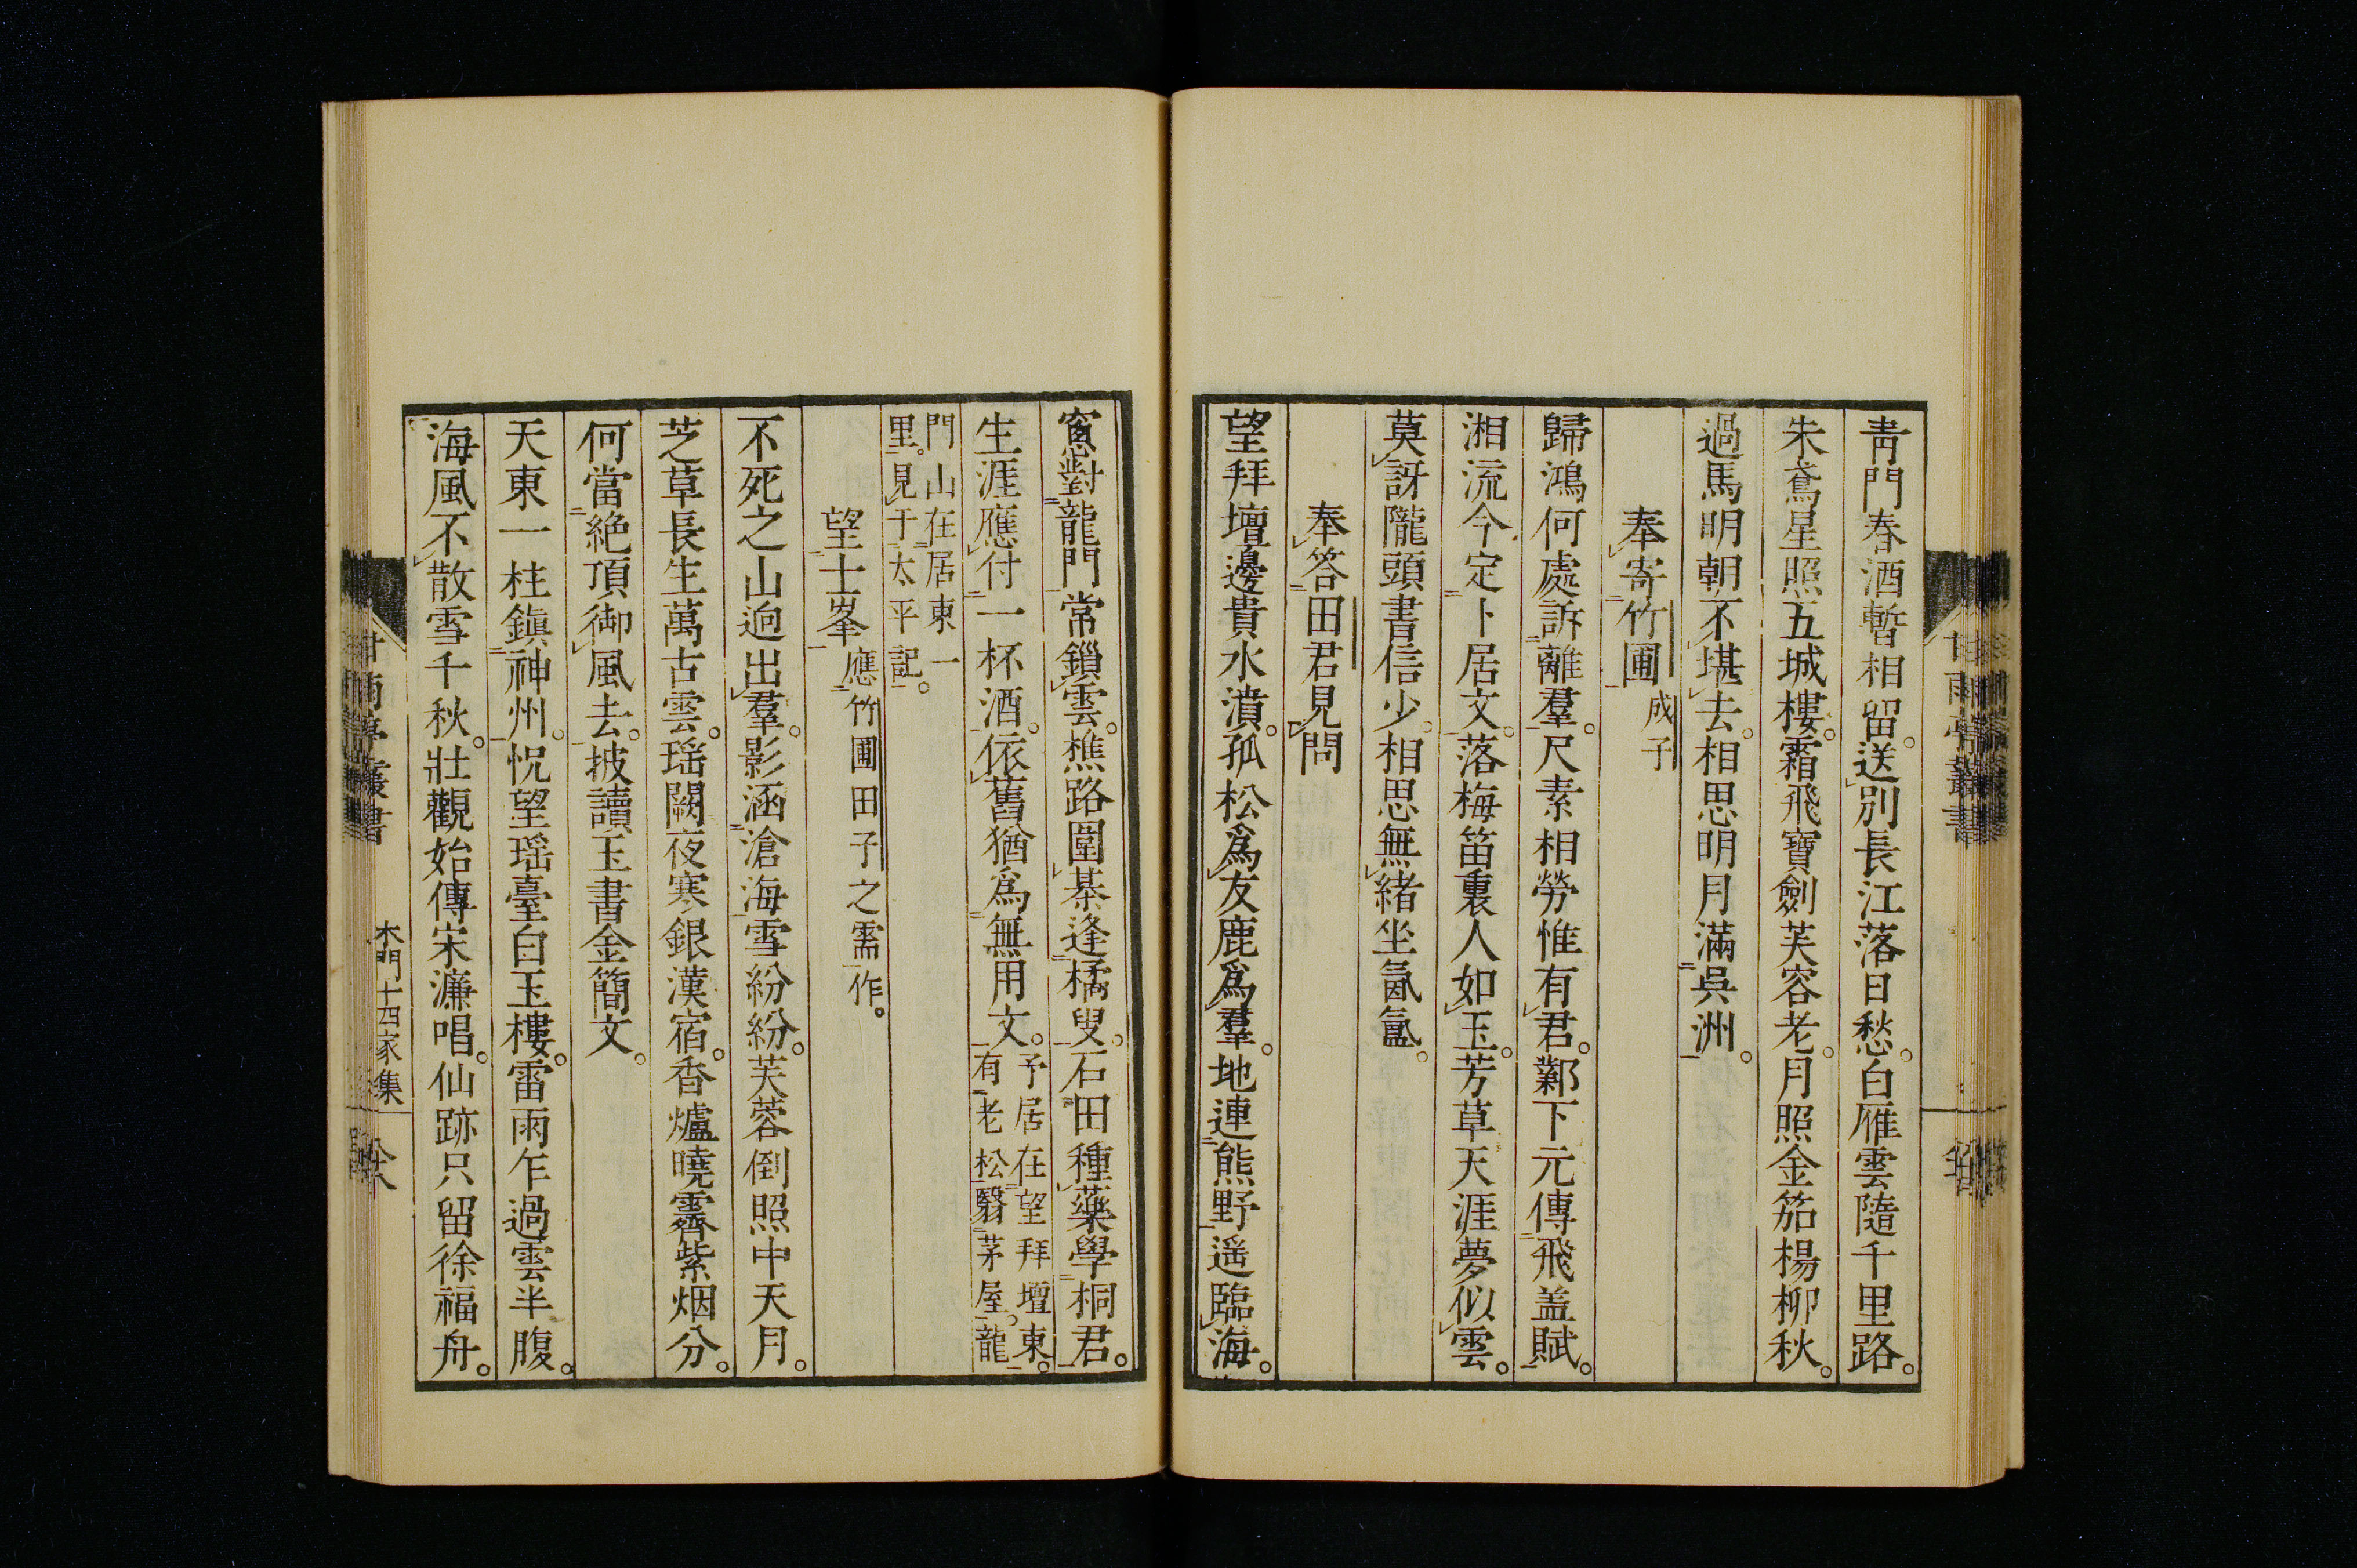 靑門春酒暫相留。送別長江落日愁。白雁雲隨千里路。
朱鳶星照五城樓。霜飛寶劍芙容老。月照金笳楊柳秋。
過馬明朝不堪去。相思明月滿吳洲。
奉寄竹圃成子
歸鴻何處訴離羣。尺素相勞惟有君。鄴下元傳飛盖賦。
湘流今定卜居文。落梅笛裏人如玉。芳草天涯夢似雲。
莫訝隴頭書信少。相思無緒坐氤氳。
奉答田君見問
望拜壇邊貴水濆。孤松爲友鹿爲羣。地連熊野遥臨海。
窓對龍門常鎖雲。樵路圍棊逢橘叟。石田種藥學桐君。
生涯應付一杯酒。依舊猶爲無用文。予居在望拜壇東。有老松翳茅屋。龍
門山在居東一里。見于太平記。
望士峯應竹圃田子之需作。
不死之山逈出羣。影涵滄海雪紛紛。芙蓉倒照中天月。
芝草長生萬古雲。瑶闕夜寒銀漢宿。香爐曉霽紫烟分。
何當絶頂御風去。披讀玉書金簡文。
天東一柱鎭神州。怳望瑶臺白玉樓。雷雨乍過雲半腹。
海風不散雪千秋。壯觀始傳宋濂唱。仙跡只留徐福舟。
甘雨亭叢書
木門十四家集